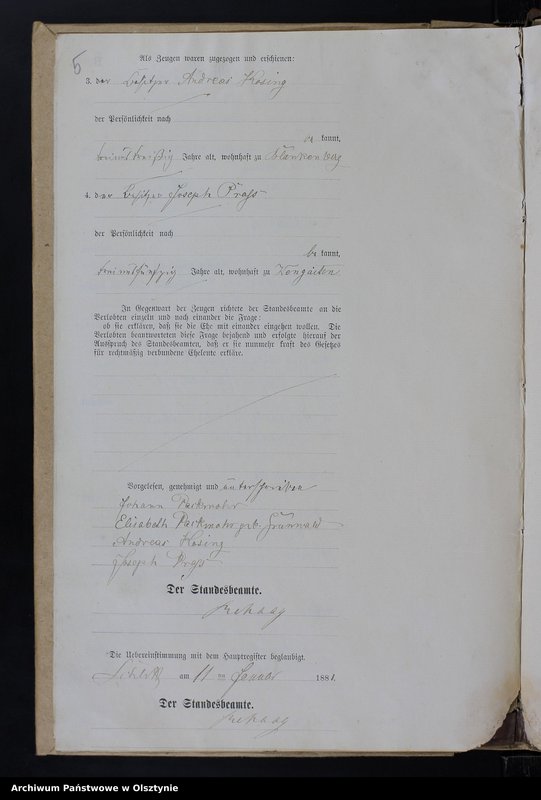 5
Als Zeugen waren zugezogen und erschienen:
3. der Besitzer Andreas Kosing
der Persönlichkeit nach
be kannt,
Jahre alt, wohnhaft zu Blankenberg
4. der Besitzer Joseph Prass
der Persönlichkeit nach
be kannt,
Jahre alt, wohnhaft zu Kongaiten
In Gegenwart der Zeugen richtete der Standesbeamte an die
Verlobten einzeln und nach einander die Frage:
ob sie erklären, daß sie die Ehe mit einander eingehen wollen. Die
Verlobten beantworteten diese Frage bejahend und erfolgte hierauf der
Ausspruch des Standesbeamten, daß er sie nunmehr kraft des Gesetzes
für rechtmäßig verbundene Eheleute erkläre.
Vorgelesen, genehmigt und unterschrieben
Johann Parkmohr
Elisabeth Parkmohr geb. Grunwald
Andreas Kosing
Joseph Prass
Der Standesbeamte.
Die Uebereinstimmung mit dem Hauptregister beglaubigt.
am 11 ten Januar 1881.
Der Standesbeamte.
Archiwum Państwowe w Olsztynie